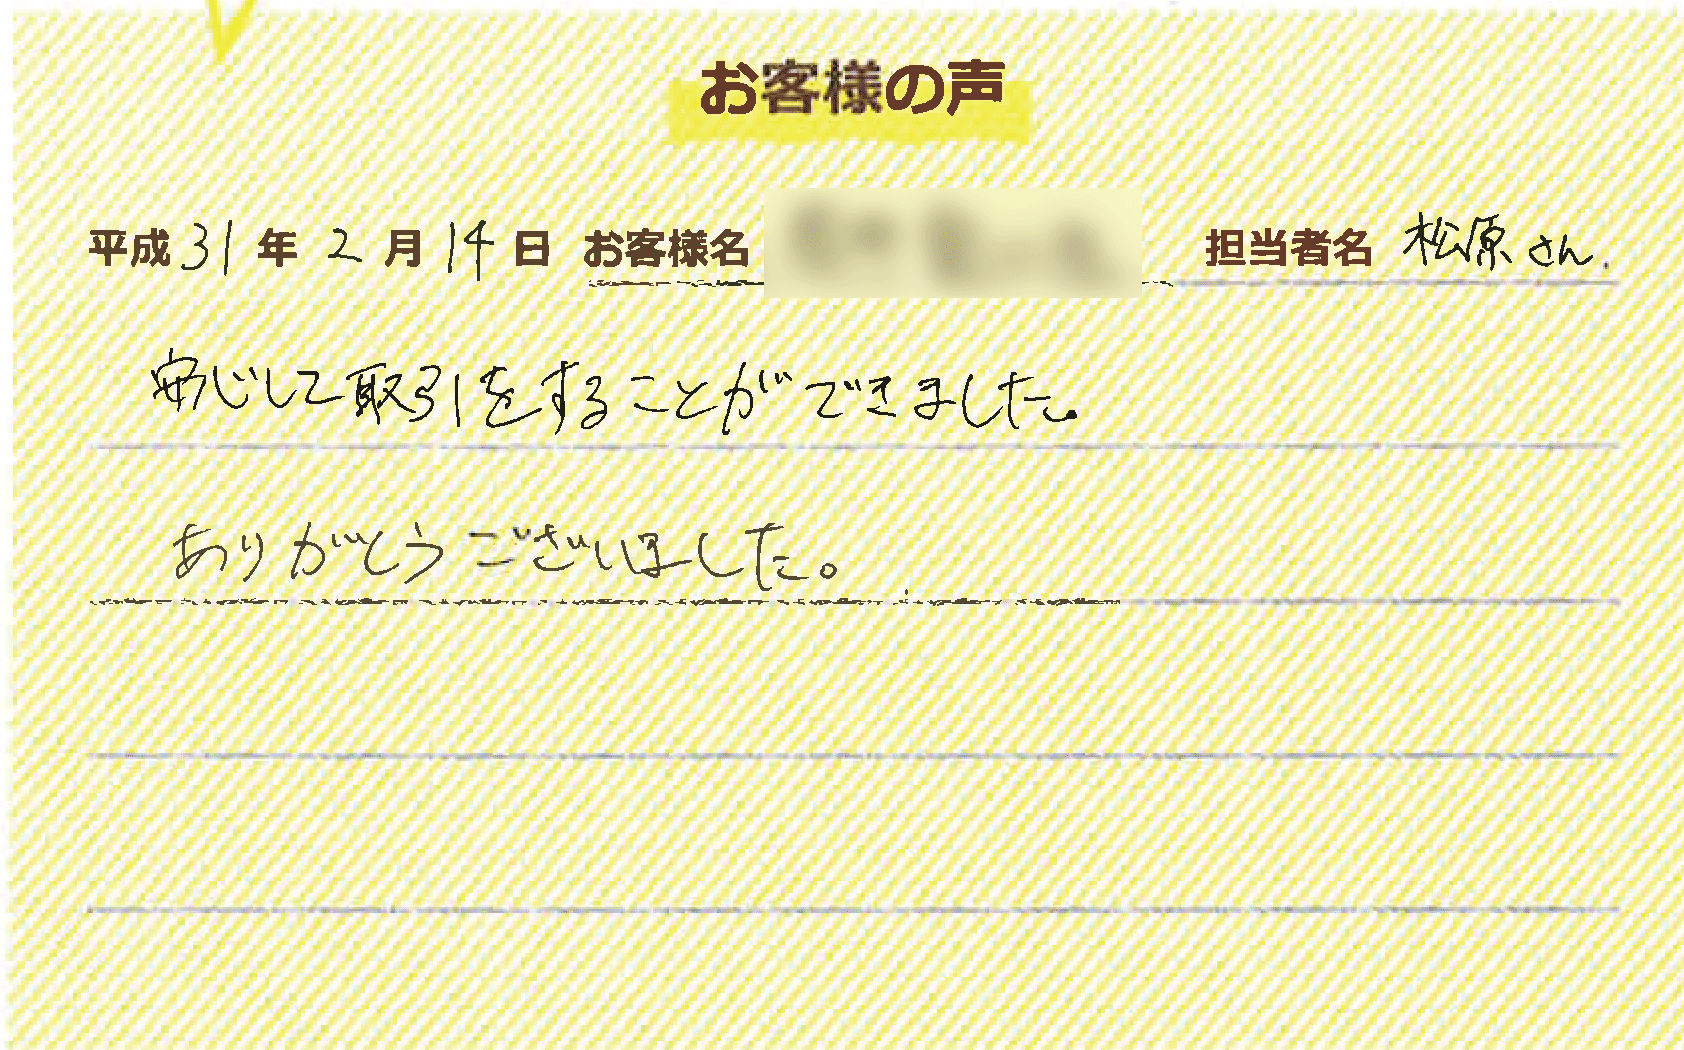 お客様の声
平成31年2月14日 お客様名 担当者名 松原さん.
安心して取引をすることができました。
ありがとうございました。